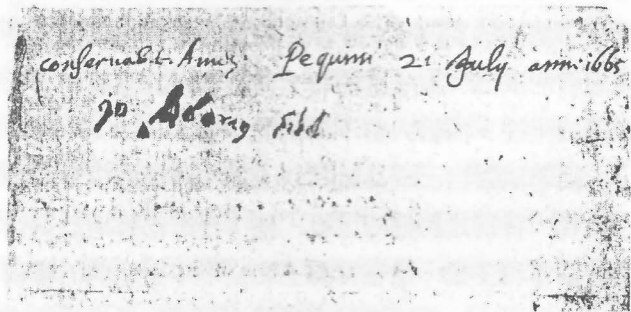 conservabit. Amen Pequini 21 July anni 1665
Jo Adamus